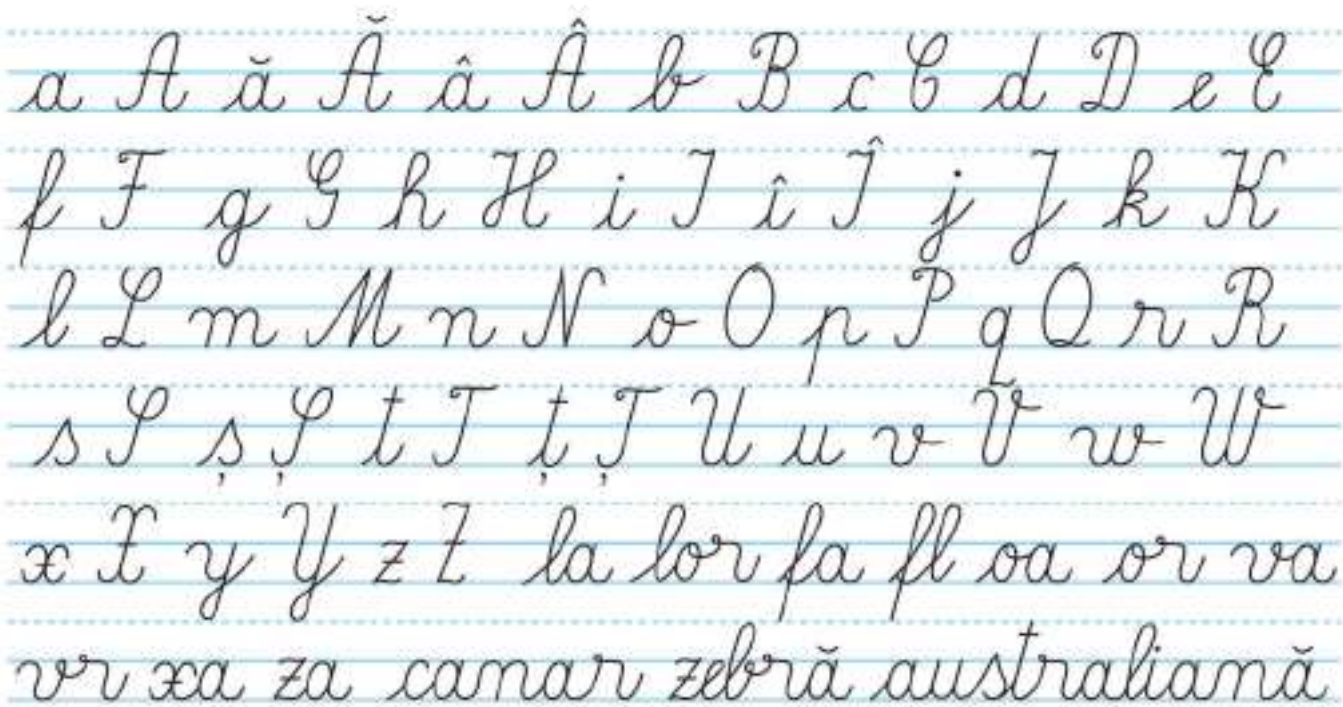 a A ă Ă â Â b B c C d D e E
f F g G h H i I î Î j J k K
l L m M n N o O p P q Q r R
s S ș Ș t T ț Ț U u v V w W
x X y Y z Z la lor fa fl oa or va
vr xa za camar zebră australiană